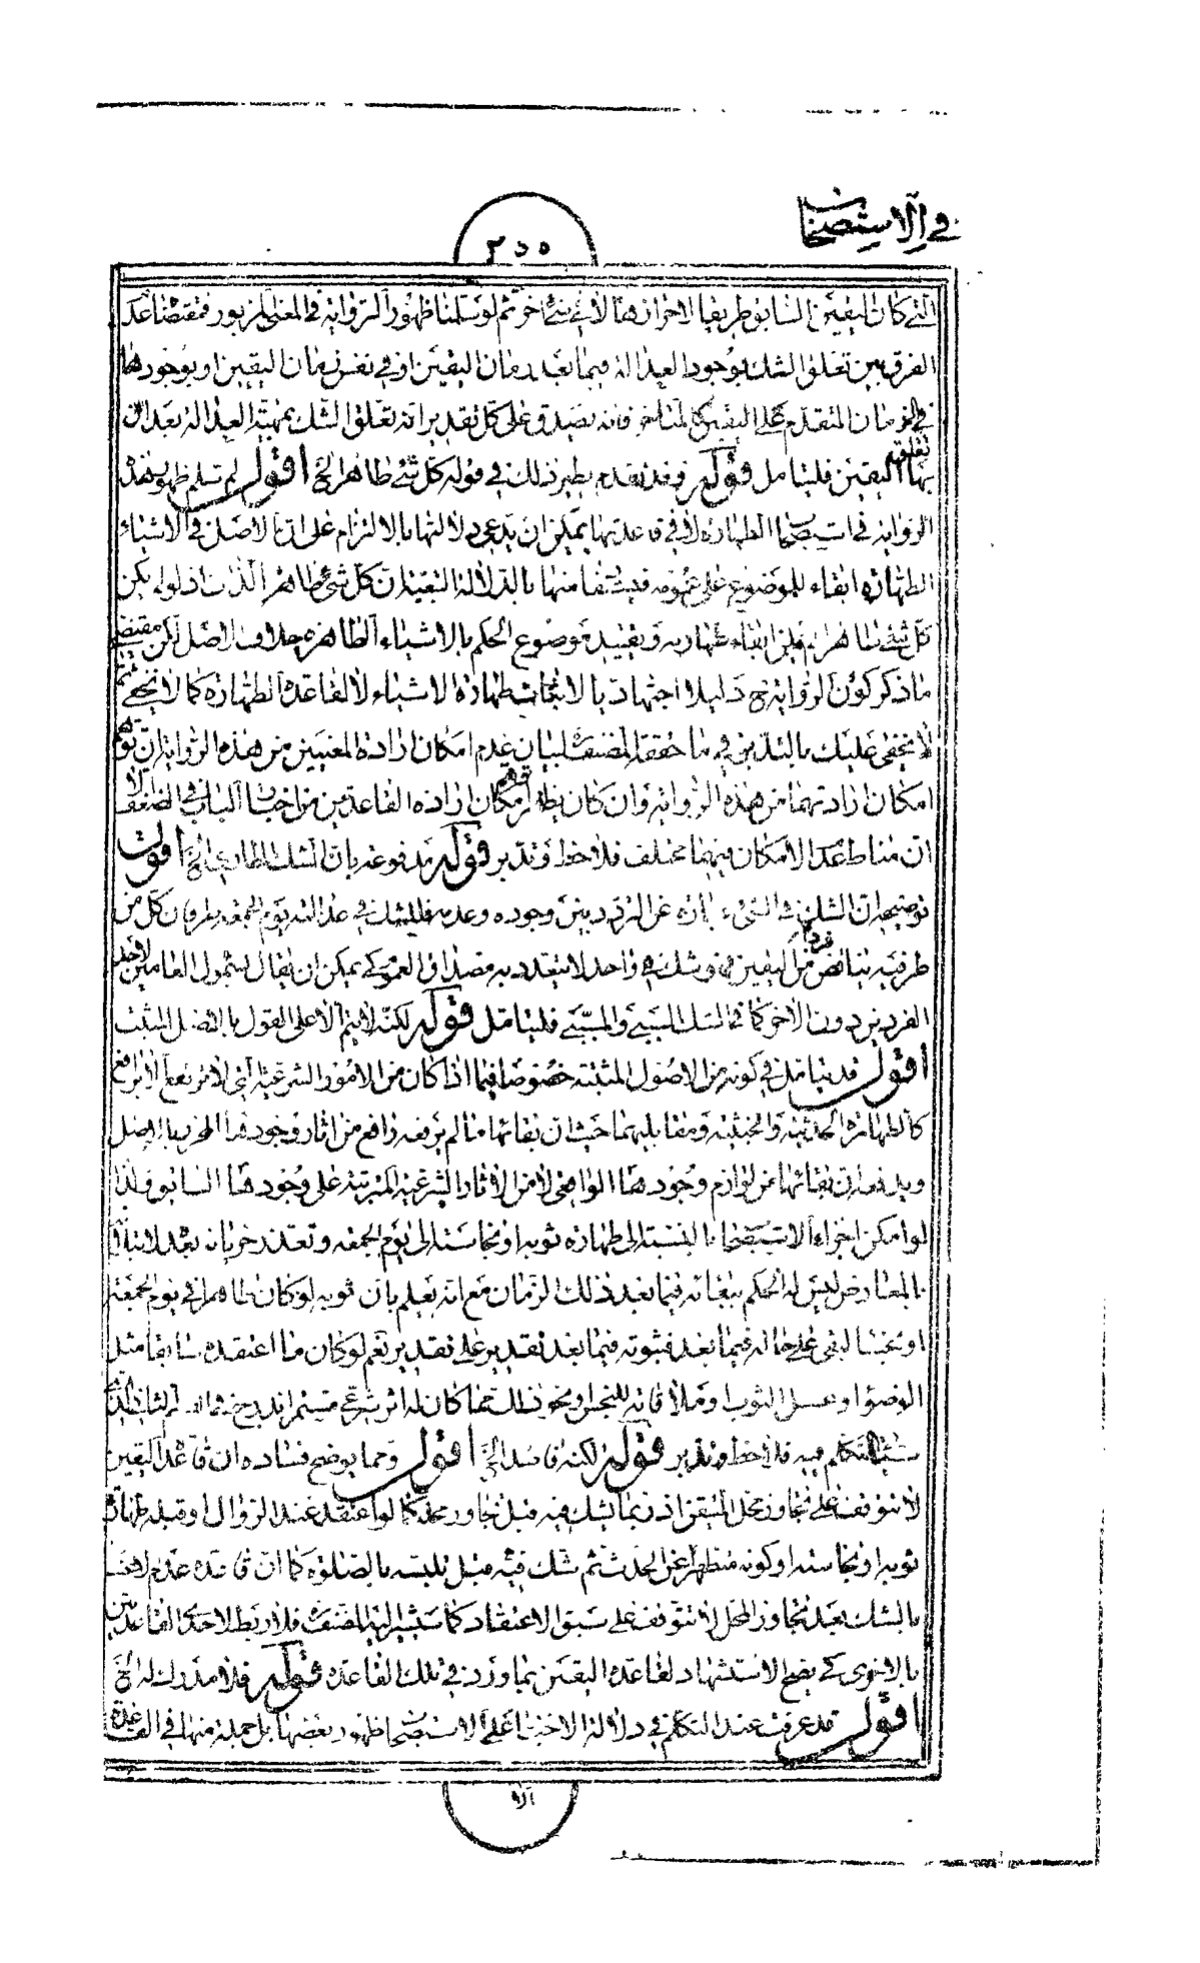 في الاستصحاب
٢٥٥
التي كان اليقين السابق طريقا لاحرازها لا في شئ اخر ثم لو سلمنا ظهور الرواية في المعنى المزبور فمقتضا عدم
الفرق بين تعلق الشك بوجود العدالة فيما بعد زمان اليقين او في نفس زمان اليقين او بوجودها
في الزمان المتقدم على اليقين كالمتاخر فانه يصدق على كل تقدير انه تعلق الشك بمهية العدالة بعد ان تعلق
بها اليقين فليتامل قوله وقد تقدم نظير ذلك في قوله كل شئ طاهر الخ اقول لم تسلم ظهور هذه
الرواية في استصحاب الطهارة لا في قاعدتها يمكن ان يدعى دلالتها بالالتزام على ان الاصل في الاشياء
الطهارة ابقاء للموضوع على عمومه فيستفاد منها بالدلالة التبعية ان كل شئ طاهر بالذات اذ لو لم يكن
كل شئ طاهرا لم يلزم ابقاء طهارته وتقييد موضوع الحكم بالاشياء الطاهرة خلاف الاصل لكن مقتضى
ما ذكر كون الرواية ح دليلا اجتهاديا لاثبات طهارة الاشياء لا لقاعدة الطهارة كما لا يخفى ثم
لا يخفى عليك بالتدبر في ما حققه المصنف ره لبيان عدم امكان ارادة المعنيين من هذه الرواية ان توهم
امكان ارادتهما من هذه الرواية وان كان نظير توهم امكان ارادة القاعدتين من اخبار الباب في الضعف الا
ان مناط عدم الامكان فيهما مختلف فلاحظ وتدبر قوله مدفوعة بان الشك الطاري الخ اقول
توضيحه ان الشك في الشئ عبارة عن التردد بين وجوده وعدمه فالشك في عدالته يوم الجمعة طرفان كل من
طرفيه يناقض فردا من اليقين فهو شك واحد لا يتعدد به مصداق العموم كي يمكن ان يقال بشمول العام لاحد
الفردين دون الاخر كما في الشك السببي والمسببي فليتامل قوله لكنه لا يتم الا على القول بالاصل المثبت
اقول قد يتامل في كونه من الاصول المثبتة خصوصا فيما اذا كان من الامور الشرعية التي لا ترتفع الا برافع
كالطهارة الحدثية والخبثية ومقابليهما حيث ان بقائها ما لم يرفعه رافع من اثار وجودها المحرز بالاصل
ويدفعه ان بقائها من لوازم وجودها الواقعي لا من الاثار الشرعية المترتبة على وجودها السابق ولذا
لو امكن اجراء الاستصحاب بالنسبة الى طهارة ثوبه او نجاسته الى يوم الجمعة وتعذر جريانه بعده لابتلائه
بالمعارض ليس له الحكم ببقائه فيما بعد ذلك الزمان مع انه يعلم بان ثوبه لو كان طاهرا في يوم الجمعة
او نجسا لبقي على حاله فيما بعد فثبوته فيما بعد تقدير على تقدير نعم لو كان ما اعتقده سابقا مثل
الوضوء او غسل الثوب او ملاقاته للنجس ونحو ذلك مما كان له اثر شرعي مستمر اندرج في الثاني الذي
سيتكلم فيه فلاحظ وتدبر قوله لكنه فاسد الخ اقول ومما يوضح فساده ان قاعدة اليقين
لا تتوقف على تجاوز محل المتيقن اذ ربما يشك فيه قبل تجاوز محله كما لو اعتقد عند الزوال او قبله طهارة
ثوبه او نجاسته او كونه متطهرا عن الحدث ثم شك فيه قبل تلبسه بالصلوة كما ان قاعدة عدم الاعتناء
بالشك بعد تجاوز المحل لا تتوقف على سبق الاعتقاد كما سيشير اليه المصنف ره فلا ربط لاحدى القاعدتين
بالاخرى كي يصح الاستشهاد لقاعدة اليقين بما ورد في تلك القاعدة قوله فلا مدرك له الخ
اقول قد عرفت عند التكلم في دلالة الاخبار على الاستصحاب ظهور بعضها بل جملة منها في القاعدة